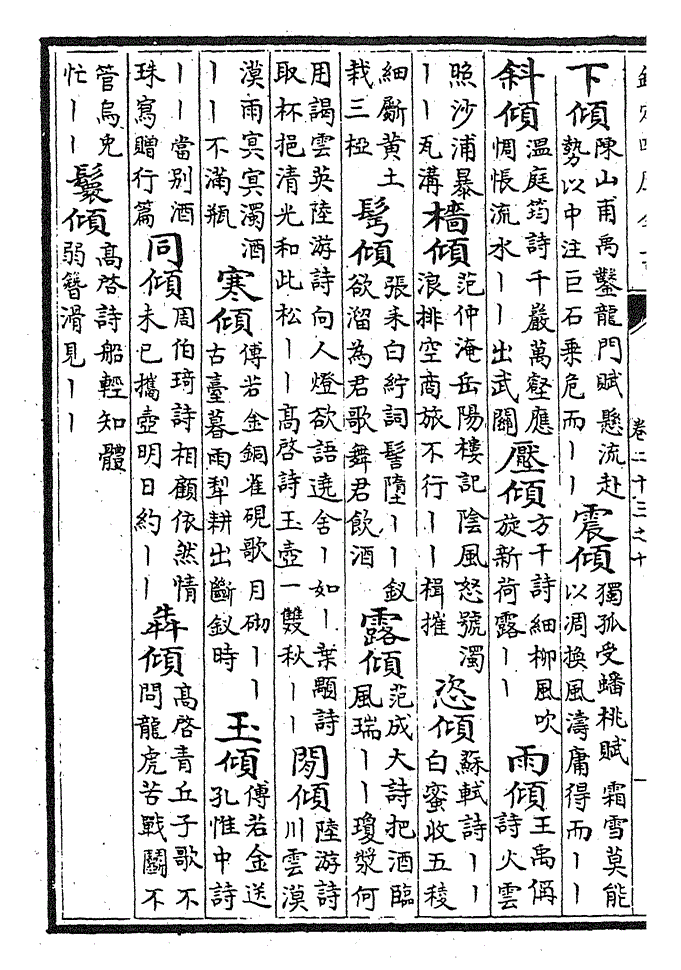 卷二十三之十
下傾陳山甫禹鑿龍門賦懸流赴勢以中注巨石乗危而丨丨震傾獨孤受蟠桃賦 霜雪莫能以凋換風濤庸得而丨丨
斜傾温庭筠詩千巖萬壑應惆悵流水丨丨出武關壓傾方干詩細柳風吹旋新荷露丨丨雨傾王禹偁詩火雲
照沙浦暴丨丨瓦溝檣傾范仲淹岳陽樓記陰風怒號濁浪排空商旅不行丨丨楫摧恣傾蘇軾詩丨丨白蜜收五稜
細斸黄土栽三椏髩傾張耒白紵詞髻墮丨丨釵欲溜為君歌舞君飲酒露傾范成大詩把酒臨風瑞丨丨瓊漿何
用謁雲英陸游詩向人燈欲語遶舍丨如丨葉顒詩取杯挹清光和此松丨丨高啓詩玉壺一雙秋丨丨閒傾陸游詩川雲漠
漠雨冥冥濁酒丨丨不滿瓶寒傾傅若金銅雀硯歌月砌丨丨古臺暮雨犁耕出斷釵時玉傾傅若金送孔惟中詩
丨丨當别酒珠寫贈行篇同傾周伯琦詩相顧依然情未已攜壺明日約丨丨犇傾高啓青丘子歌不問龍虎苦戰鬬不
管烏兔忙丨丨鬟傾高啓詩船輕知體弱簪滑見丨丨